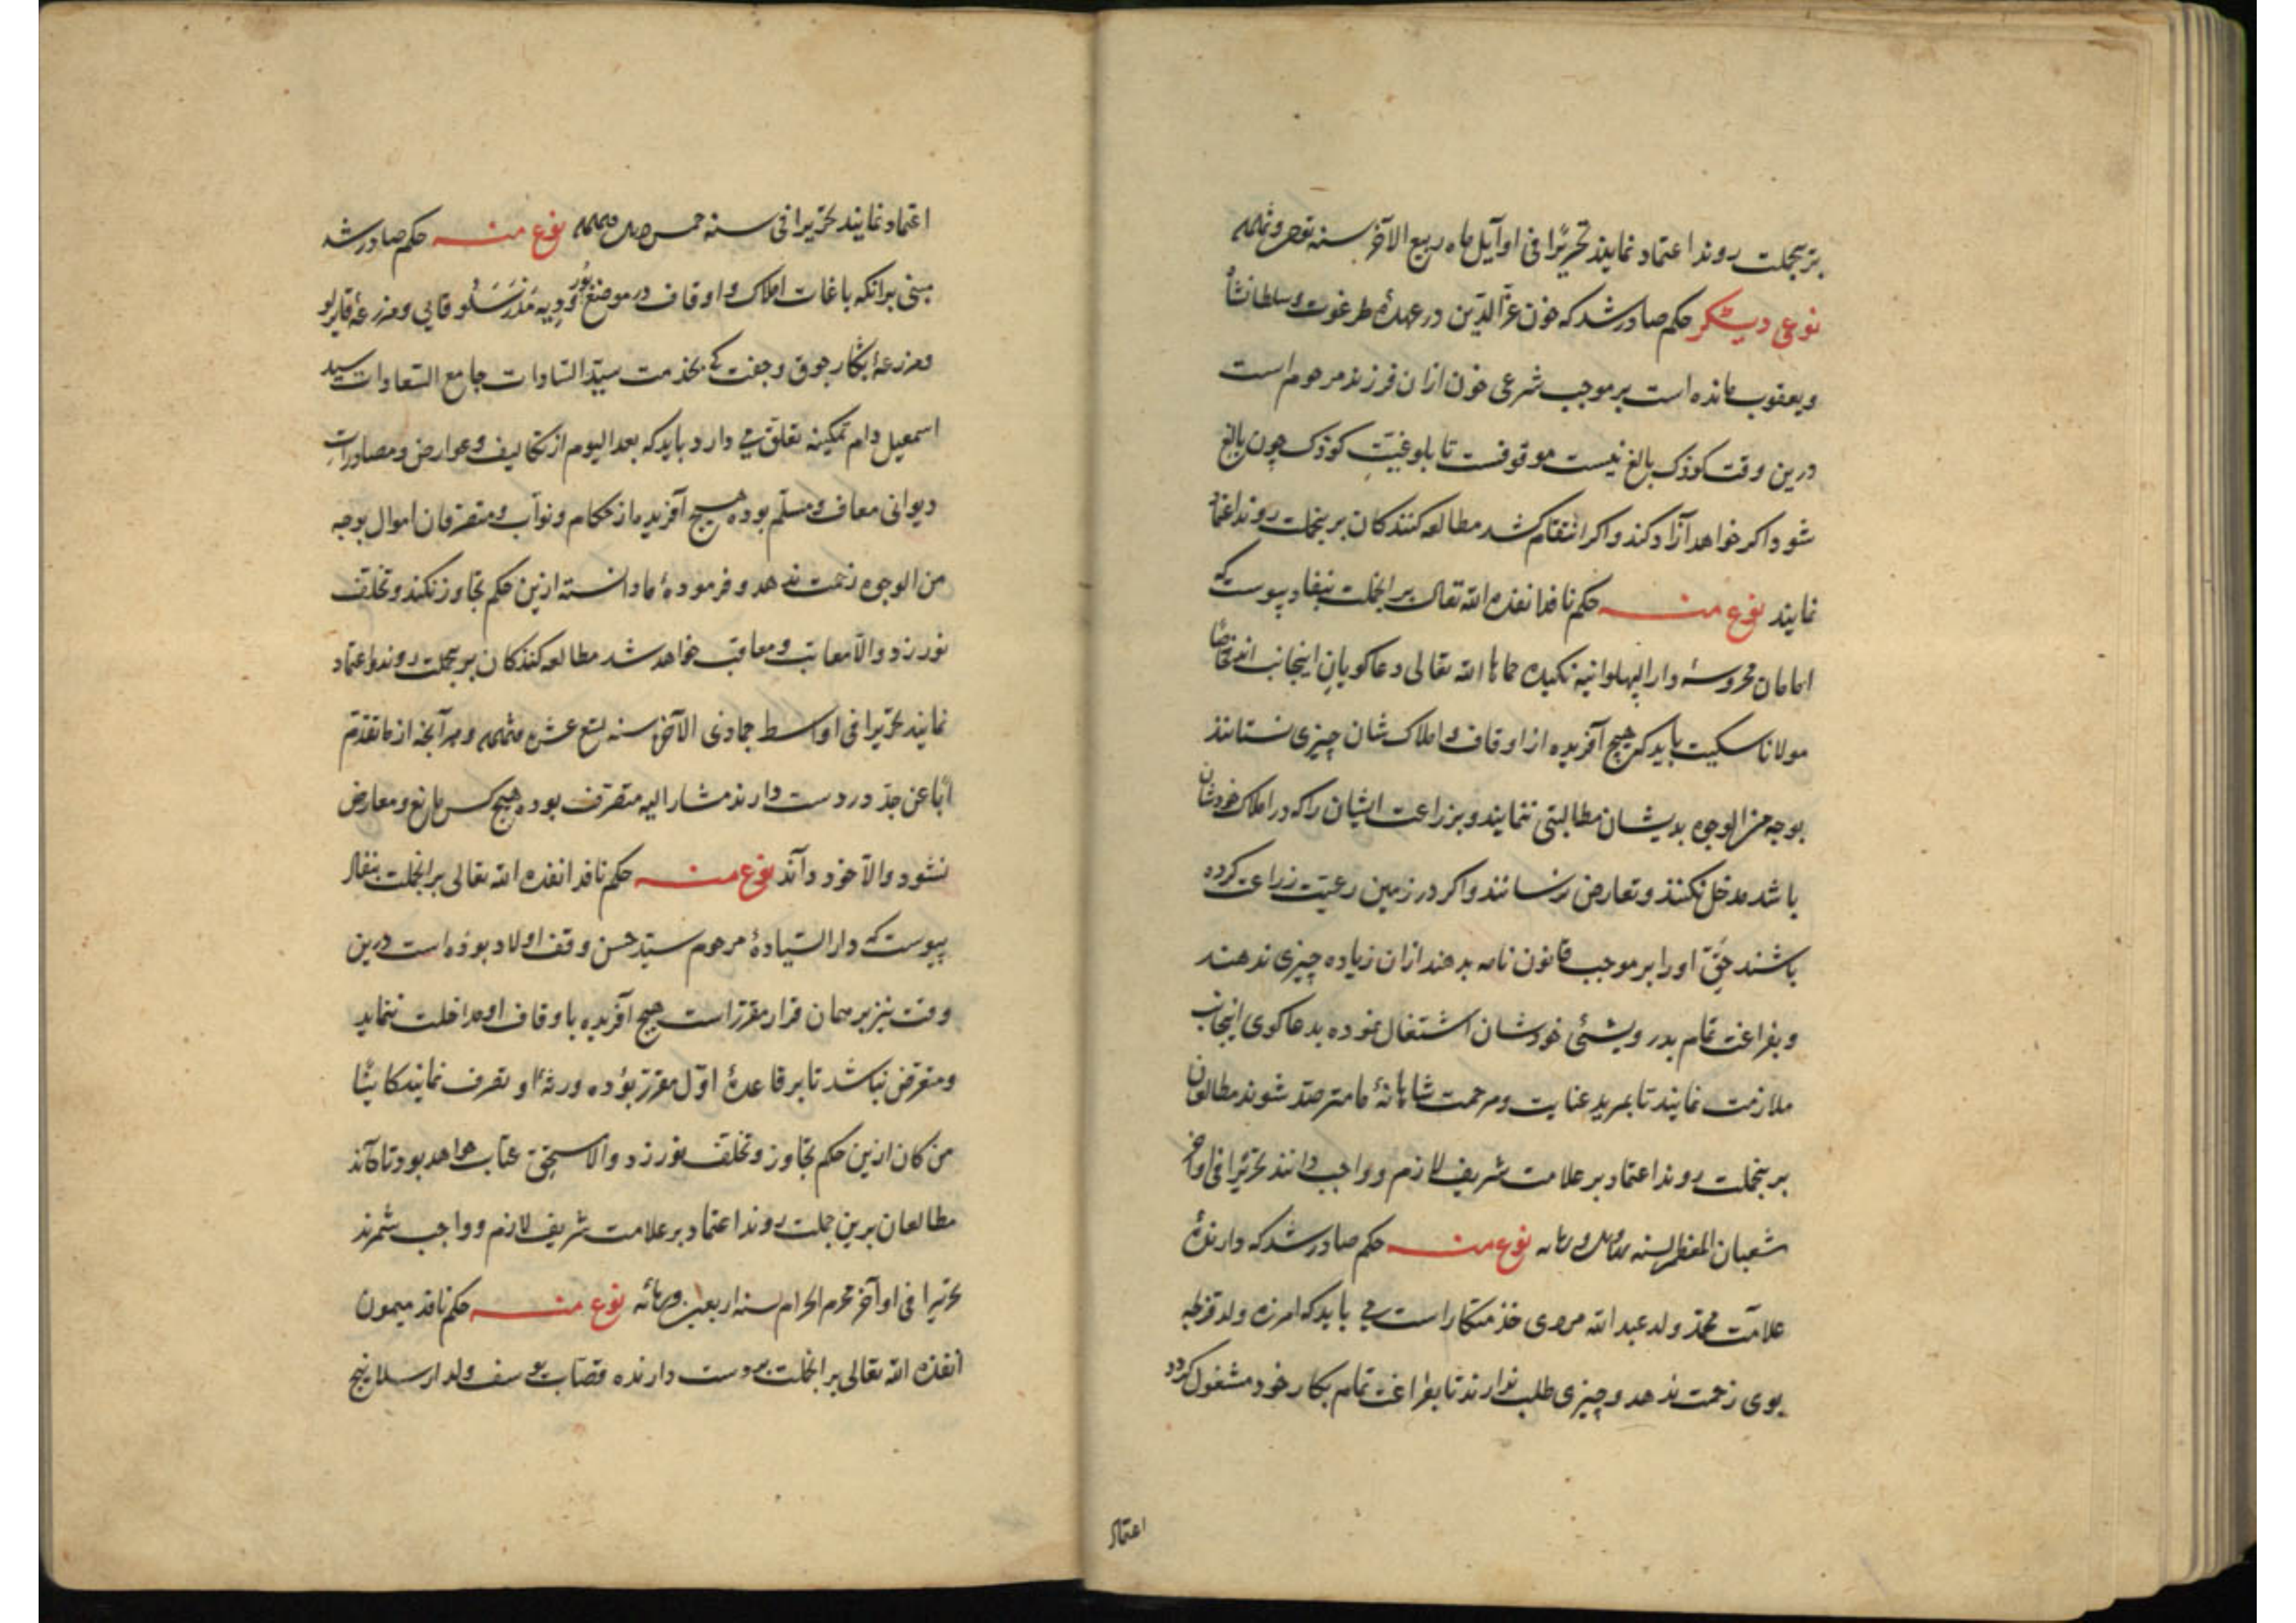 برینجملت روند اعتماد نمایند تحریرًا فی اوآیل ماه ربیع الآخر سنه
نوعی دیکر حکم صادر شد که خون عزّ الدّین در عهدهٔ طرغوت و سلطانشاٰ
ویعقوب مانده است بر موجب شرعی خون ازان فرزند مرحوم است
درین وقت کوذک بالغ نیست موقوفست تا بلوغیّت کوذک چون بالغ
شود اکر خواهد آزاد کند واکر انتقام کشد مطالعه کنندکان برینجملت روند اعتماد
نمایند نوع منه حکم نافذ انفذه الله تعالی بر انجملت بنفاد پیوست که
امامان محروسهٔ دار الپهلوانیه نکیده حماها الله تعالی دعا کویان اینجانب اند خاصّا
مولانا سکیت باید که هیچ آفریده از اوقاف و املاک شان چیزی نستانند
بوجه من الوجوه بدیشان مطالبتی ننمایند وبزراعت ایشان را که در املاک خودشان
باشد مدخل نکنند وتعارض نرسانند واکر در زمین رعیّت زراعت کرده
باشند حقّ اورا بر موجب قانون نامه بدهند ازان زیاده چیزی ندهند
وبفراغت تمام بدرویشئ خودشان اشتغال نموده بدعا کوی اینجانب
ملازمت نمایند تا بمرید عنایت ومرحمت شاهانهٔ ما مترصّد شوند مطالعان
برینجملت روند اعتماد بر علامت شریف لازم وواجب دانند تحریرًا فی اواخر
شعبان المعظم لسنه نوع منه حکم صادر شد که دارندهٔ
علامت محمّد ولد عبد الله مروی خذمتکار است می باید که امرزه ولد قزلجه
بوی زحمت ندهد وچیزی طلب ندارند تا بفراغت تمام بکار خود مشغول کردد
اعتماد
اعتماد نمایند تحریرا فی سنه خمس نوع منه حکم صادر شد
مبنی برانکه باغات املاک واوقاف در موضع ومزرعهٔ
ومزرعهٔ وجفت که بخذمت سیّد السّادات جامع السّعادات سید
اسمعیل دام تمکینه تعلّق می دارد باید که بعد الیوم از تکالیف وعوارض ومصادرات
دیوانی معاف ومسلّم بوده هیچ آفریده از حکام ونوّاب ومتصرّفان اموال بوجه
من الوجوه زحمت ندهد و فرمودهٔ ما دانسته ازین حکم تجاوز نکند وتخلّف
نورزد والّا معاتب ومعاقب خواهد شد مطالعه کنندکان برینجملت روند واعتماد
نمایند تحریرا فی اواسط جمادی الآخر سنه تسع عشره وهر آنچه از ما تقدّم
ابًا عن جدّ در دست دارند مشار الیه متصرّف بوده هیچ کس مانع ومعارض
نشود والّا خود داند نوع منه حکم نافذ انفذه الله تعالی بر انجملت بنفاد
پیوست که دار السّیادهٔ مرحوم سیّد حسن وقف اولاد بوذه است درین
وقت نیز بر همان قرار مقرّر است هیچ آفریده باوقاف او مداخلت ننماید
ومتعرّض نباشد تا بر قاعدهٔ اوّل مقرّر بوده ورثهٔ او تصرف نمایند کاینًا
من کان ازین حکم تجاوز وتخلّف نورزد والّا مستحقّ عتاب خواهد بود تا دانند
مطالعان برین جملت روند اعتماد بر علامت شریف لازم وواجب شمرند
تحریرا فی اواخر محرم الحرام لسنه اربعین نوع منه حکم نافذ میمون
انفذه الله تعالی بر انجملت بدست دارنده قصّاب یوسف ولد ارسلان